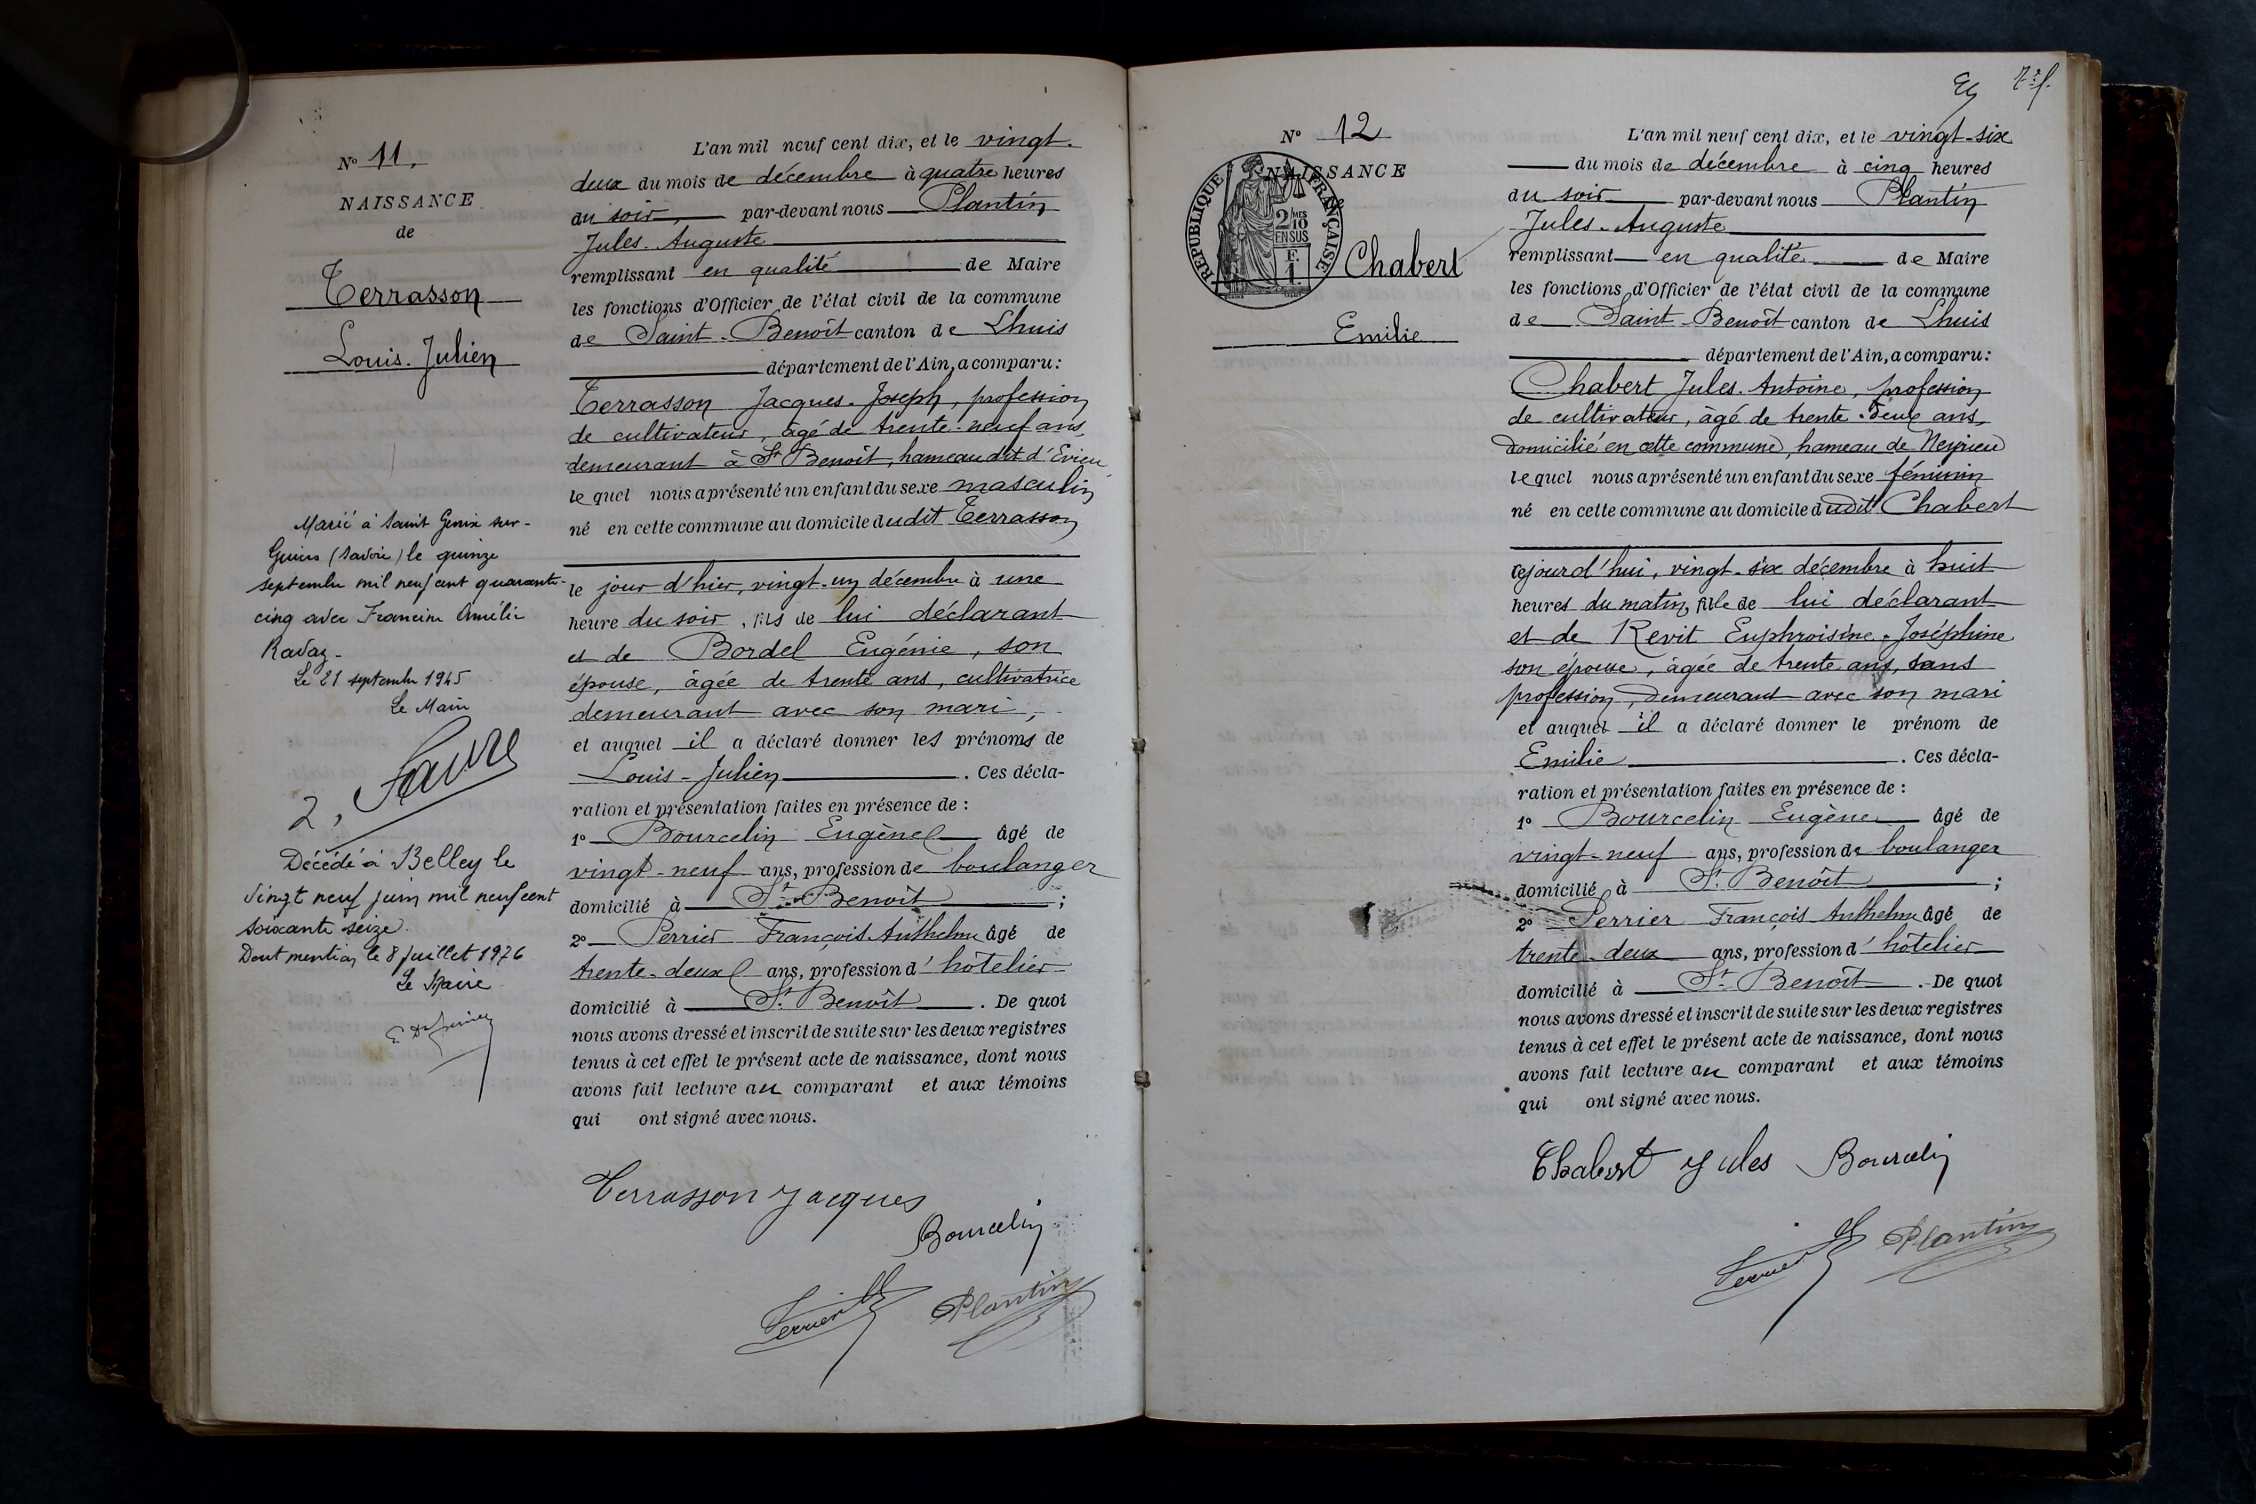 Nº 11.
NAISSANCE
de
Terrasson
Louis-Julien
Marié à Saint Genix sur-
Guiers (Savoie) le quinze
septembre mil neuf cent quarante-
cinq avec Francine Amélie
Ravaz-
Le 21 septembre 1945
Le Maire
Favre
2,
Décédé à Belley le
vingt neuf juin mil neuf cent
soixante seize.
Dont mention le 8 Juillet 1976
Le Maire
L'an mil neuf cent dix, et le vingt-
deux du mois de décembre à quatre heures
du soir, par-devant nous Plantin
Jules-Auguste
remplissant en qualité de Maire
les fonctions d'Officier de l'état civil de la commune
de Saint-Benoît canton de Lhuis
département de l'Ain, a comparu:
Terrasson Jacques-Joseph, profession
de cultivateur, âgé de trente-neuf ans,
demeurant à St Benoît, hameau dit d'Evieu,
le quel nous a présenté un enfant du sexe masculin
né en cette commune au domicile dudit Terrasson
le jour d'hier, vingt-un décembre à une
heure du soir, fils de lui déclarant
et de Bordel Eugénie, son
épouse, âgée de trente ans, cultivatrice
demeurant avec son mari,
et auquel il a déclaré donner les prénoms de
Louis-Julien. Ces décla-
ration et présentation faites en présence de :
1º Bourcelin Eugène âgé de
vingt-neuf ans, profession de boulanger
domicilié à St. Benoît ;
2º Perrier François Anthelme âgé de
trente-deux ans, profession d'hôtelier
domicilié à St. Benoît. De quoi
nous avons dressé et inscrit de suite sur les deux registres
tenus à cet effet le présent acte de naissance, dont nous
avons fait lecture au comparant et aux témoins
qui ont signé avec nous.
Terrasson Jacques
Bourcelin
Perrier Plantin
7e f.
Nº 12
NAISSANCE
RÉPUBLIQUE FRANÇAISE
2/10MES
EN SUS
F.
1.
Chabert
Emilie
L'an mil neuf cent dix, et le vingt-six
du mois de décembre à cinq heures
du soir par-devant nous Plantin
Jules-Auguste
remplissant en qualité de Maire
les fonctions d'Officier de l'état civil de la commune
de Saint-Benoît canton de Lhuis
département de l'Ain, a comparu:
Chabert Jules-Antoine, profession
de cultivateur, âgé de trente-deux ans,
domicilié en cette commune, hameau de Neyrieu
le quel nous a présenté un enfant du sexe féminin
né en cette commune au domicile dudit Chabert
cejourd'hui, vingt-six décembre à huit
heures du matin, fille de lui déclarant
et de Revit Euphroisine-Joséphine
son épouse, âgée de trente ans, sans
profession, demeurant avec son mari
et auquel il a déclaré donner le prénom de
Emilie. Ces décla-
ration et présentation faites en présence de :
1º Bourcelin Eugène âgé de
vingt-neuf ans, profession de boulanger
domicilié à St. Benoît ;
2º Perrier François Anthelme âgé de
trente-deux ans, profession d'hôtelier
domicilié à St. Benoît. De quoi
nous avons dressé et inscrit de suite sur les deux registres
tenus à cet effet le présent acte de naissance, dont nous
avons fait lecture au comparant et aux témoins
qui ont signé avec nous.
Chabert Jules Bourcelin
Perrier Plantin